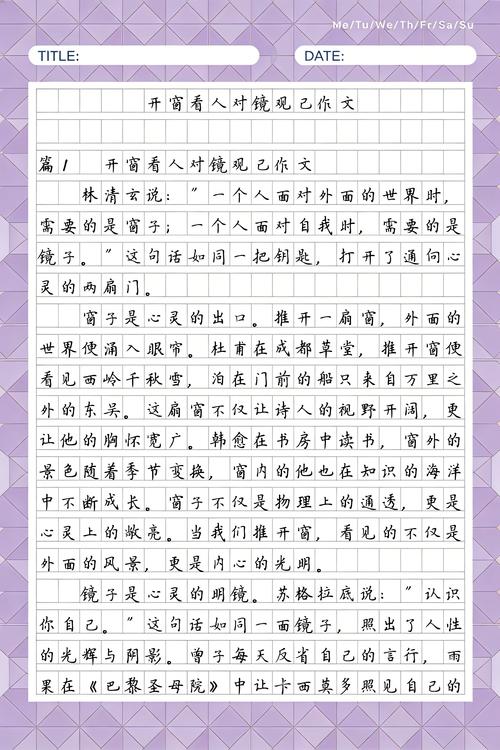 Me/Tu/We/Th/Fr/Sa/Su
TITLE:
DATE:
开窗看人对镜观己作文
篇1 开窗看人对镜观己作文
林清玄说："一个人面对外面的世界时，
需要的是窗子；一个人面对自我时，需要的是
镜子。"这句话如同一把钥匙，打开了通向心
灵的两扇门。
窗子是心灵的出口。推开一扇窗，外面的
世界便涌入眼帘。杜甫在成都草堂，推开窗便
看见西岭千秋雪，泊在门前的船只来自万里之
外的东吴。这扇窗不仅让诗人的视野开阔，更
让他的胸怀宽广。韩愈在书房中读书，窗外的
景色随着季节变换，窗内的他也在知识的海洋
中不断成长。窗子不仅是物理上的通透，更是
心灵上的敞亮。当我们推开窗，看见的不仅是
外面的风景，更是内心的光明。
镜子是心灵的明镜。苏格拉底说："认识
你自己。"这句话如同一面镜子，照出了人性
的光辉与阴影。曾子每天反省自己的言行，雨
果在《巴黎圣母院》中让卡西莫多照见自己的